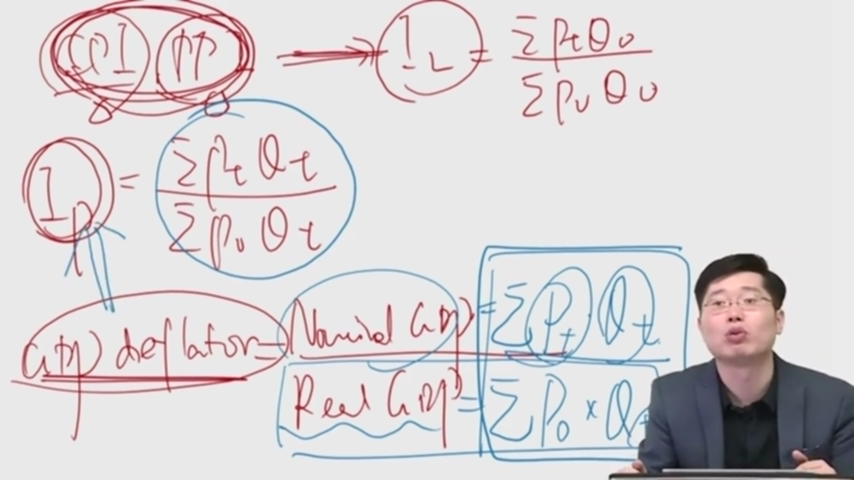 CPI PPI → I_L = ΣPtQ0 / ΣP0Q0
I_P = ΣPtQt / ΣP0Qt
GDP deflator = Nominal GDP = ΣPt Qt
Real GDP = ΣP0 × Qt